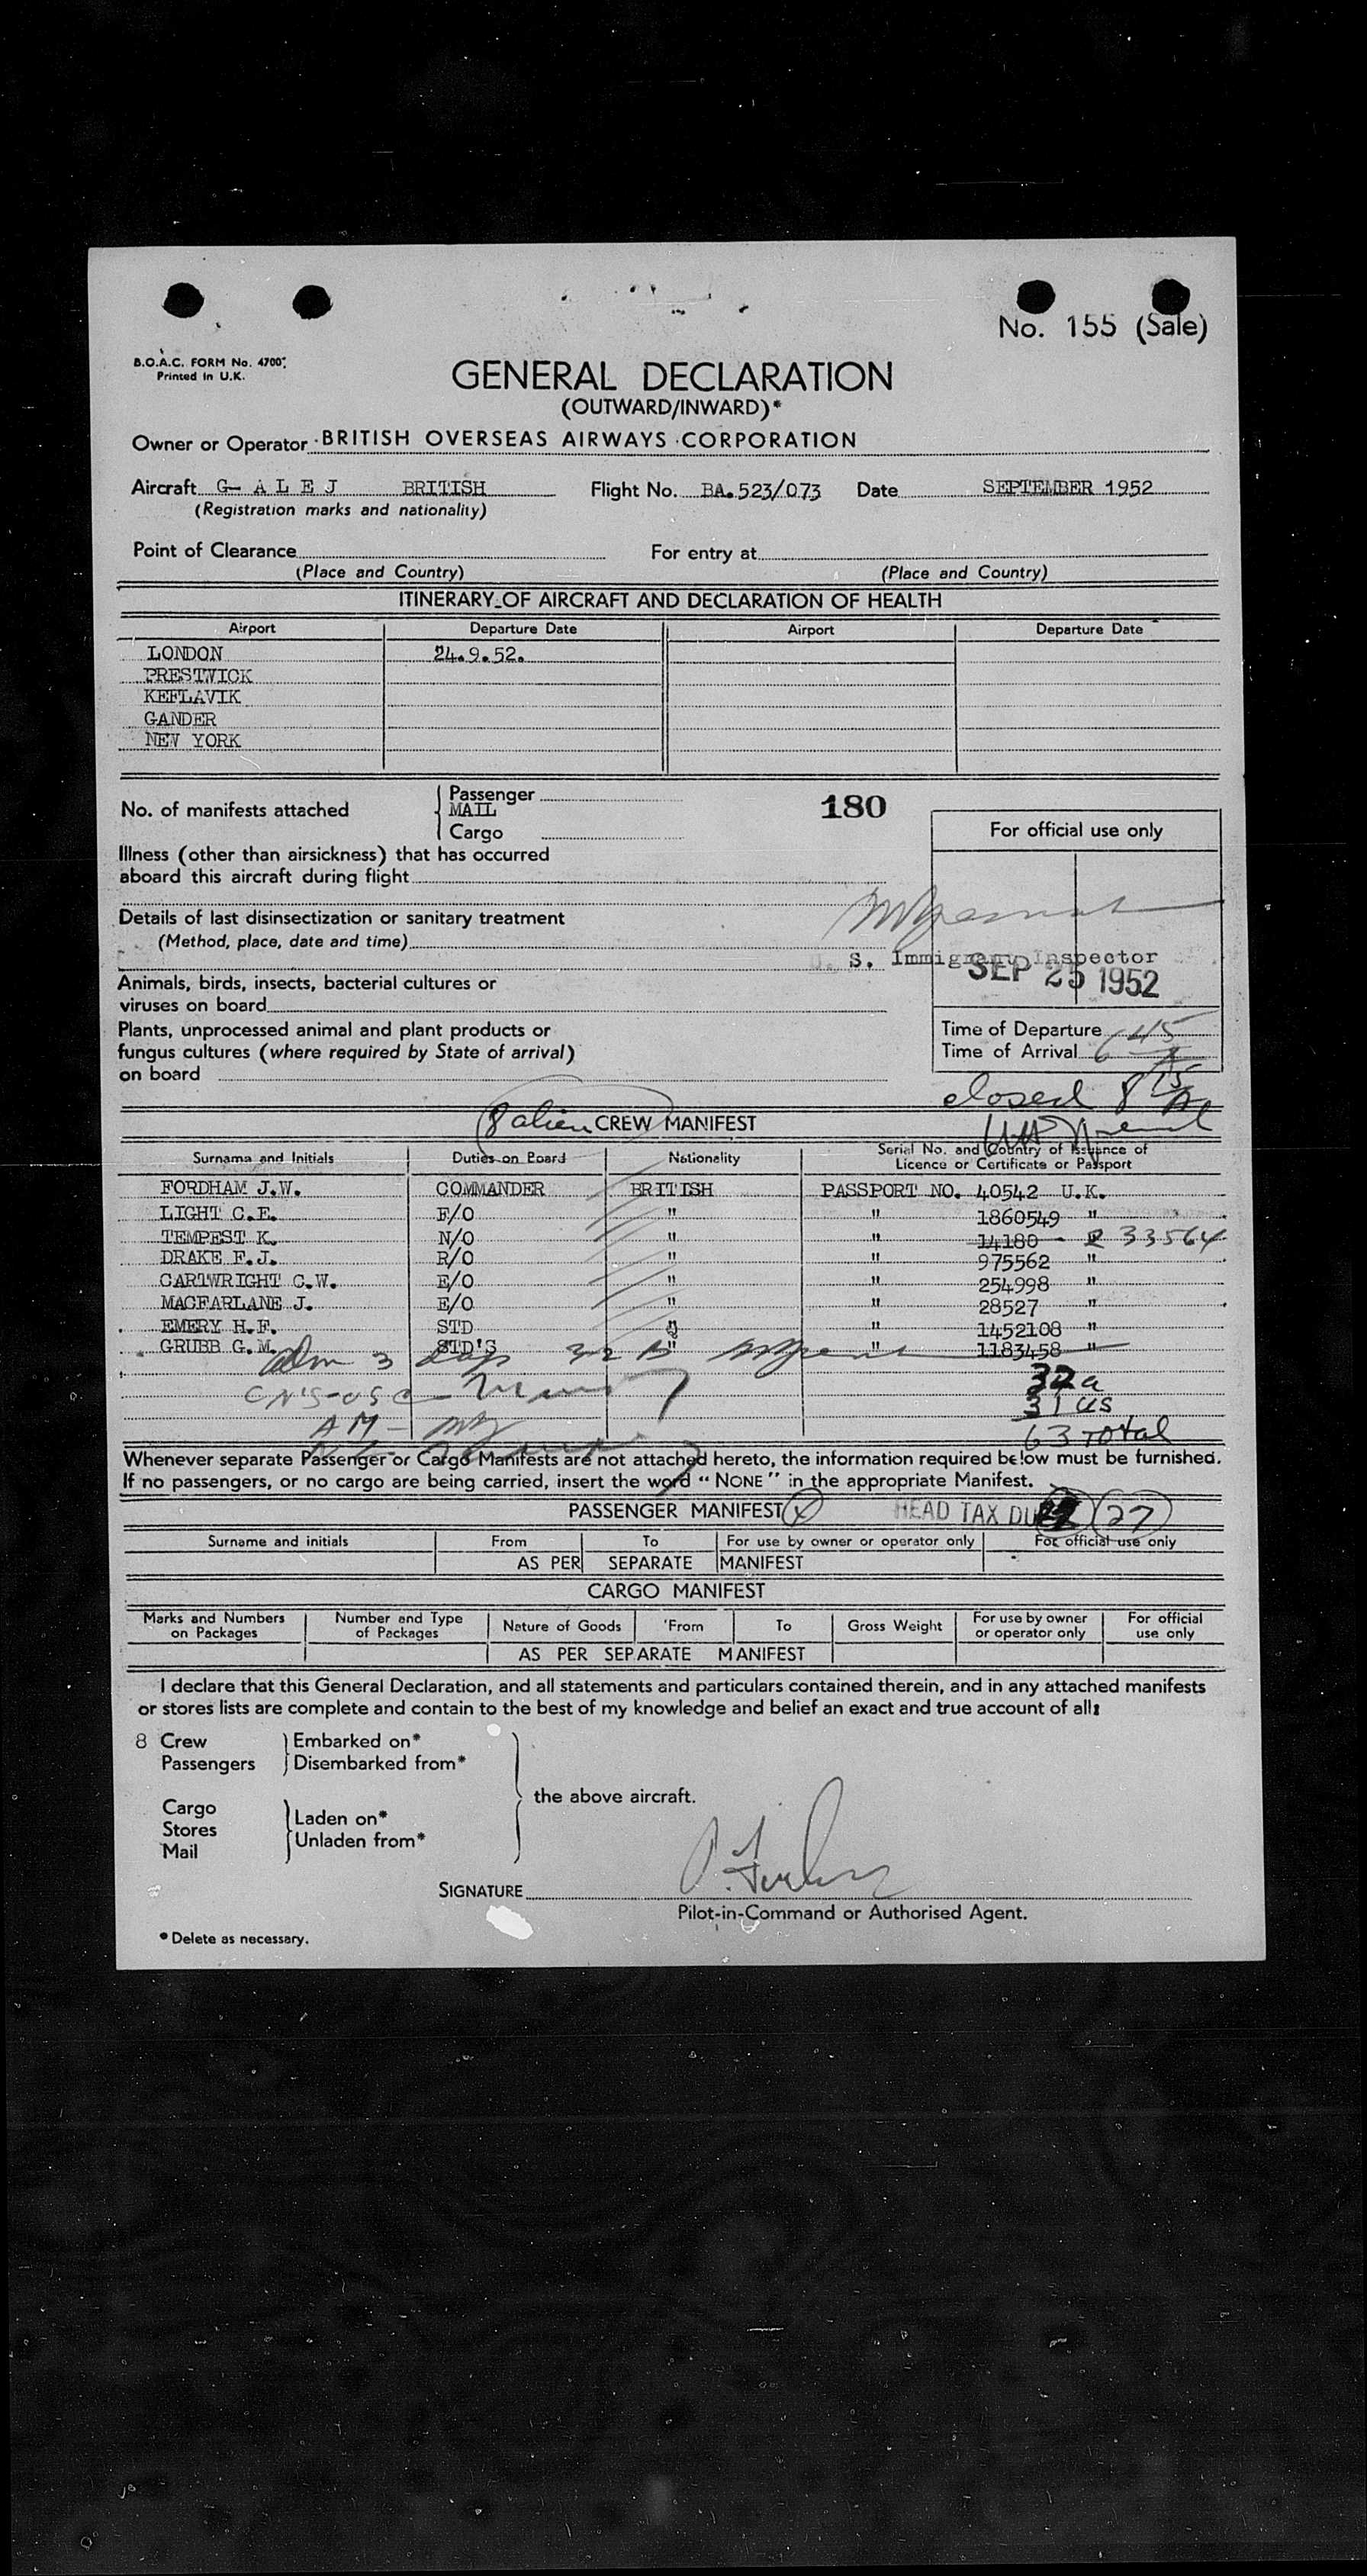 No. 155 (Sale)
B.O.A.C. FORM No. 4700
Printed in U.K.
GENERAL DECLARATION
(OUTWARD/INWARD)*
Owner or Operator BRITISH OVERSEAS AIRWAYS CORPORATION
Aircraft G- A L E J BRITISH Flight No. BA.523/073 Date SEPTEMBER 1952
(Registration marks and nationality)
Point of Clearance For entry at
(Place and Country) (Place and Country)
ITINERARY OF AIRCRAFT AND DECLARATION OF HEALTH
Airport Departure Date Airport Departure Date
LONDON 24.9.52.
PRESTWICK
KEFLAVIK
GANDER
NEW YORK
No. of manifests attached
Passenger
MAIL
Cargo
180
For official use only
Illness (other than airsickness) that has occurred
aboard this aircraft during flight
Details of last disinsectization or sanitary treatment
(Method, place, date and time)
U. S. Immigrant Inspector
SEP 25 1952
Animals, birds, insects, bacterial cultures or
viruses on board
Plants, unprocessed animal and plant products or
fungus cultures (where required by State of arrival)
on board
Time of Departure
Time of Arrival 6 45
closed 8 15
8 alien CREW MANIFEST
Surname and Initials Duties on Board Nationality Serial No. and Country of Issuance of
Licence or Certificate or Passport
FORDHAM J.W. COMMANDER BRITISH PASSPORT NO. 40542 U.K.
LIGHT C.E. F/O " " 1860549 "
TEMPEST K. N/O " " 14180 - R 33564
DRAKE F.J. R/O " " 975562 "
CARTWRIGHT C.W. E/O " " 254998 "
MACFARLANE J. E/O " " 28527 "
EMERY H.F. STD " " 1452108 "
GRUBB G.M. STD'S " " 1183458 "
Adm 3
32 a
31 US
63 Total
Whenever separate Passenger or Cargo Manifests are not attached hereto, the information required below must be furnished.
If no passengers, or no cargo are being carried, insert the word "NONE" in the appropriate Manifest.
PASSENGER MANIFEST HEAD TAX DUE 27
Surname and initials From To For use by owner or operator only For official use only
AS PER SEPARATE MANIFEST
CARGO MANIFEST
Marks and Numbers on Packages Number and Type of Packages Nature of Goods From To Gross Weight For use by owner or operator only For official use only
AS PER SEPARATE MANIFEST
I declare that this General Declaration, and all statements and particulars contained therein, and in any attached manifests
or stores lists are complete and contain to the best of my knowledge and belief an exact and true account of all:
8 Crew Embarked on*
Passengers Disembarked from*
the above aircraft.
Cargo
Stores
Mail
Laden on*
Unladen from*
SIGNATURE
Pilot-in-Command or Authorised Agent.
* Delete as necessary.